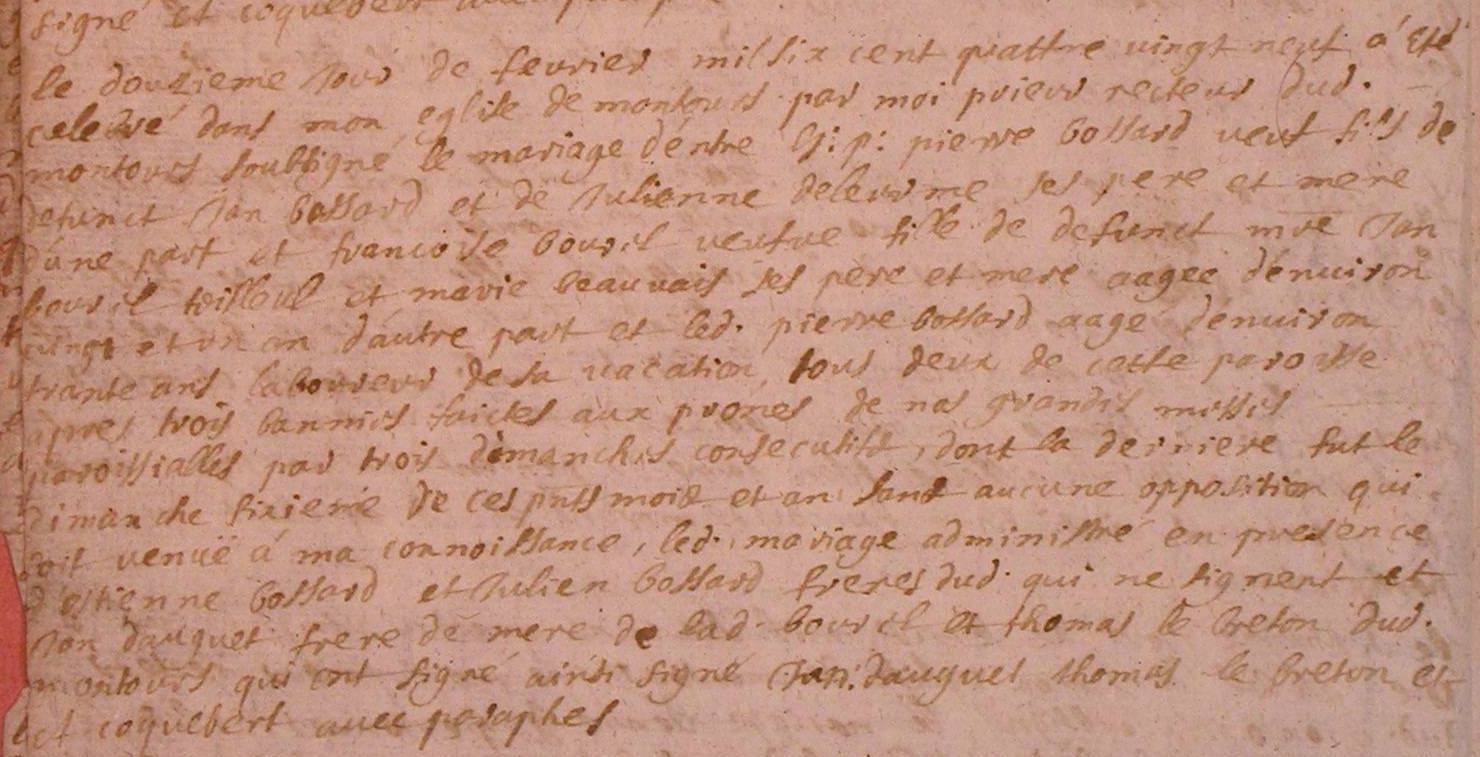 signé et coquebert
le douzieme Jour de fevrier mil six cent quattre vingt neuf a été
celebré dans mon eglise de montours par moi prieur recteur dud.
montours soubsigné le mariage d'entre h: p: pierre bossard veuf fils de
defunct Jan bossard et de Julienne deleurme ses pere et mere
d'une part et francoise bouril veufve fille de defunct mre Jan
bouril tilleul et marie beauvais ses pere et mere aagee d'enuiron
vingt et un an d'autre part et led. pierre bossard aagé d'enuiron
trante ans laboureur de sa vacation tous deux de cette paroisse
apres trois bannies faictes aux prones de nos grandes messes
paroissialles par trois dimanches consecutifs, dont la derniere fut le
dimanche sixieme de ces pnts mois et an sans aucune opposition qui
soit venuë à ma connoissance, led. mariage administré en presence
d'estienne bossard et Julien bossard freres dud. qui ne signent et
Jan dauguet frere de mere de lad. bouril et thomas le breton dud.
montours qui ont signé ainsi signé Jan dauguet thomas le breton et
coquebert avec paraphes